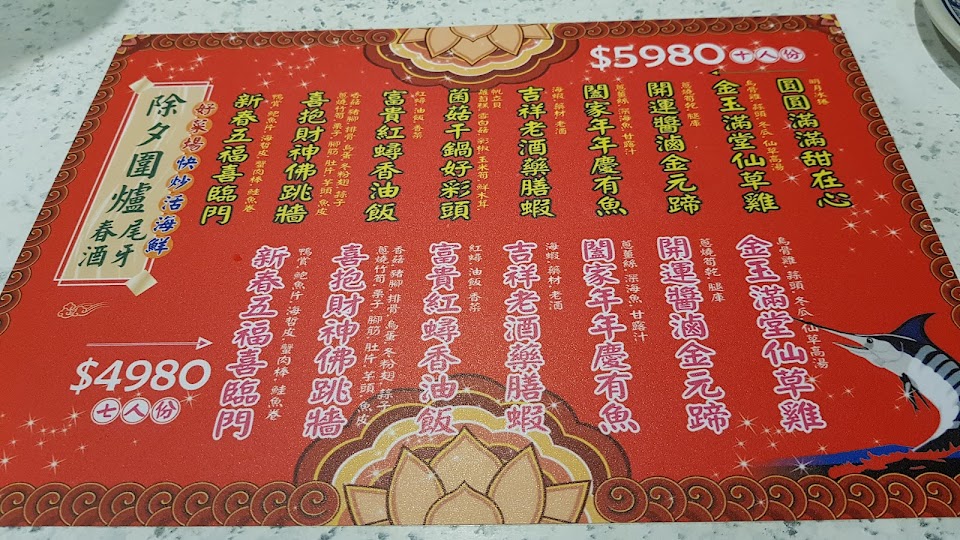 除夕圍爐
尾牙
春酒
好菜場快炒活海鮮
$5980
十人份
新春五福喜臨門
鴨賞 鮑魚片 海哲皮 蟹肉棒 鮭魚卷
喜抱財神佛跳牆
香菇 豬腳 排骨 鳥蛋 冬粉翅 蒜子
蔥燒竹筍 栗子 腳筋 肚片 芋頭 魚皮
富貴紅蟳香油飯
紅蟳 油飯 香菜
菌菇干鍋好彩頭
帆立貝
雪白菇 彩椒 玉米筍 鮮木耳
吉祥老酒藥膳蝦
海蝦 藥材 老酒
闔家年年慶有魚
蔥薑絲 深海魚 甘露汁
開運醬滷金元蹄
蔥燒筍乾 腿庫
金玉滿堂仙草雞
烏骨雞 蒜頭 冬瓜 仙草高湯
圓圓滿滿甜在心
$4980
七人份
新春五福喜臨門
鴨賞 鮑魚片 海哲皮 蟹肉棒 鮭魚卷
喜抱財神佛跳牆
香菇 豬腳 排骨 鳥蛋 冬粉翅 蒜子
蔥燒竹筍 栗子 腳筋 肚片 芋頭 魚皮
富貴紅蟳香油飯
紅蟳 油飯 香菜
吉祥老酒藥膳蝦
海蝦 藥材 老酒
闔家年年慶有魚
蔥薑絲 深海魚 甘露汁
開運醬滷金元蹄
蔥燒筍乾 腿庫
金玉滿堂仙草雞
烏骨雞 蒜頭 冬瓜 仙草高湯